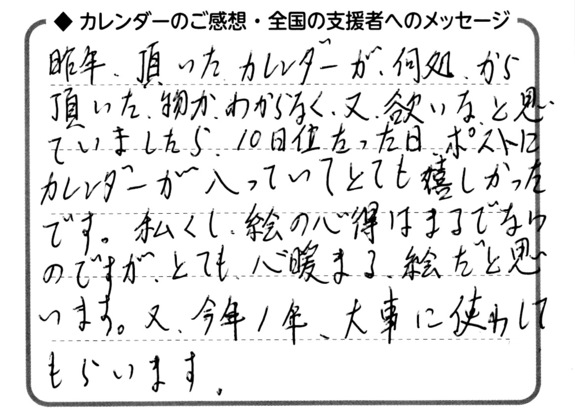 ◆ カレンダーのご感想・全国の支援者へのメッセージ
昨年、頂いたカレンダーが、何処、から
頂いた、物か、わからなく、又、欲いな、と思っ
ていましたら、10日位たった日、ポストに
カレンダーが入っていてとても嬉しかった
です。私くし、絵の心得はまるでない
のですが、とても、心暖まる、絵だと思
います。又、今年1年、大事に使わして
もらいます。